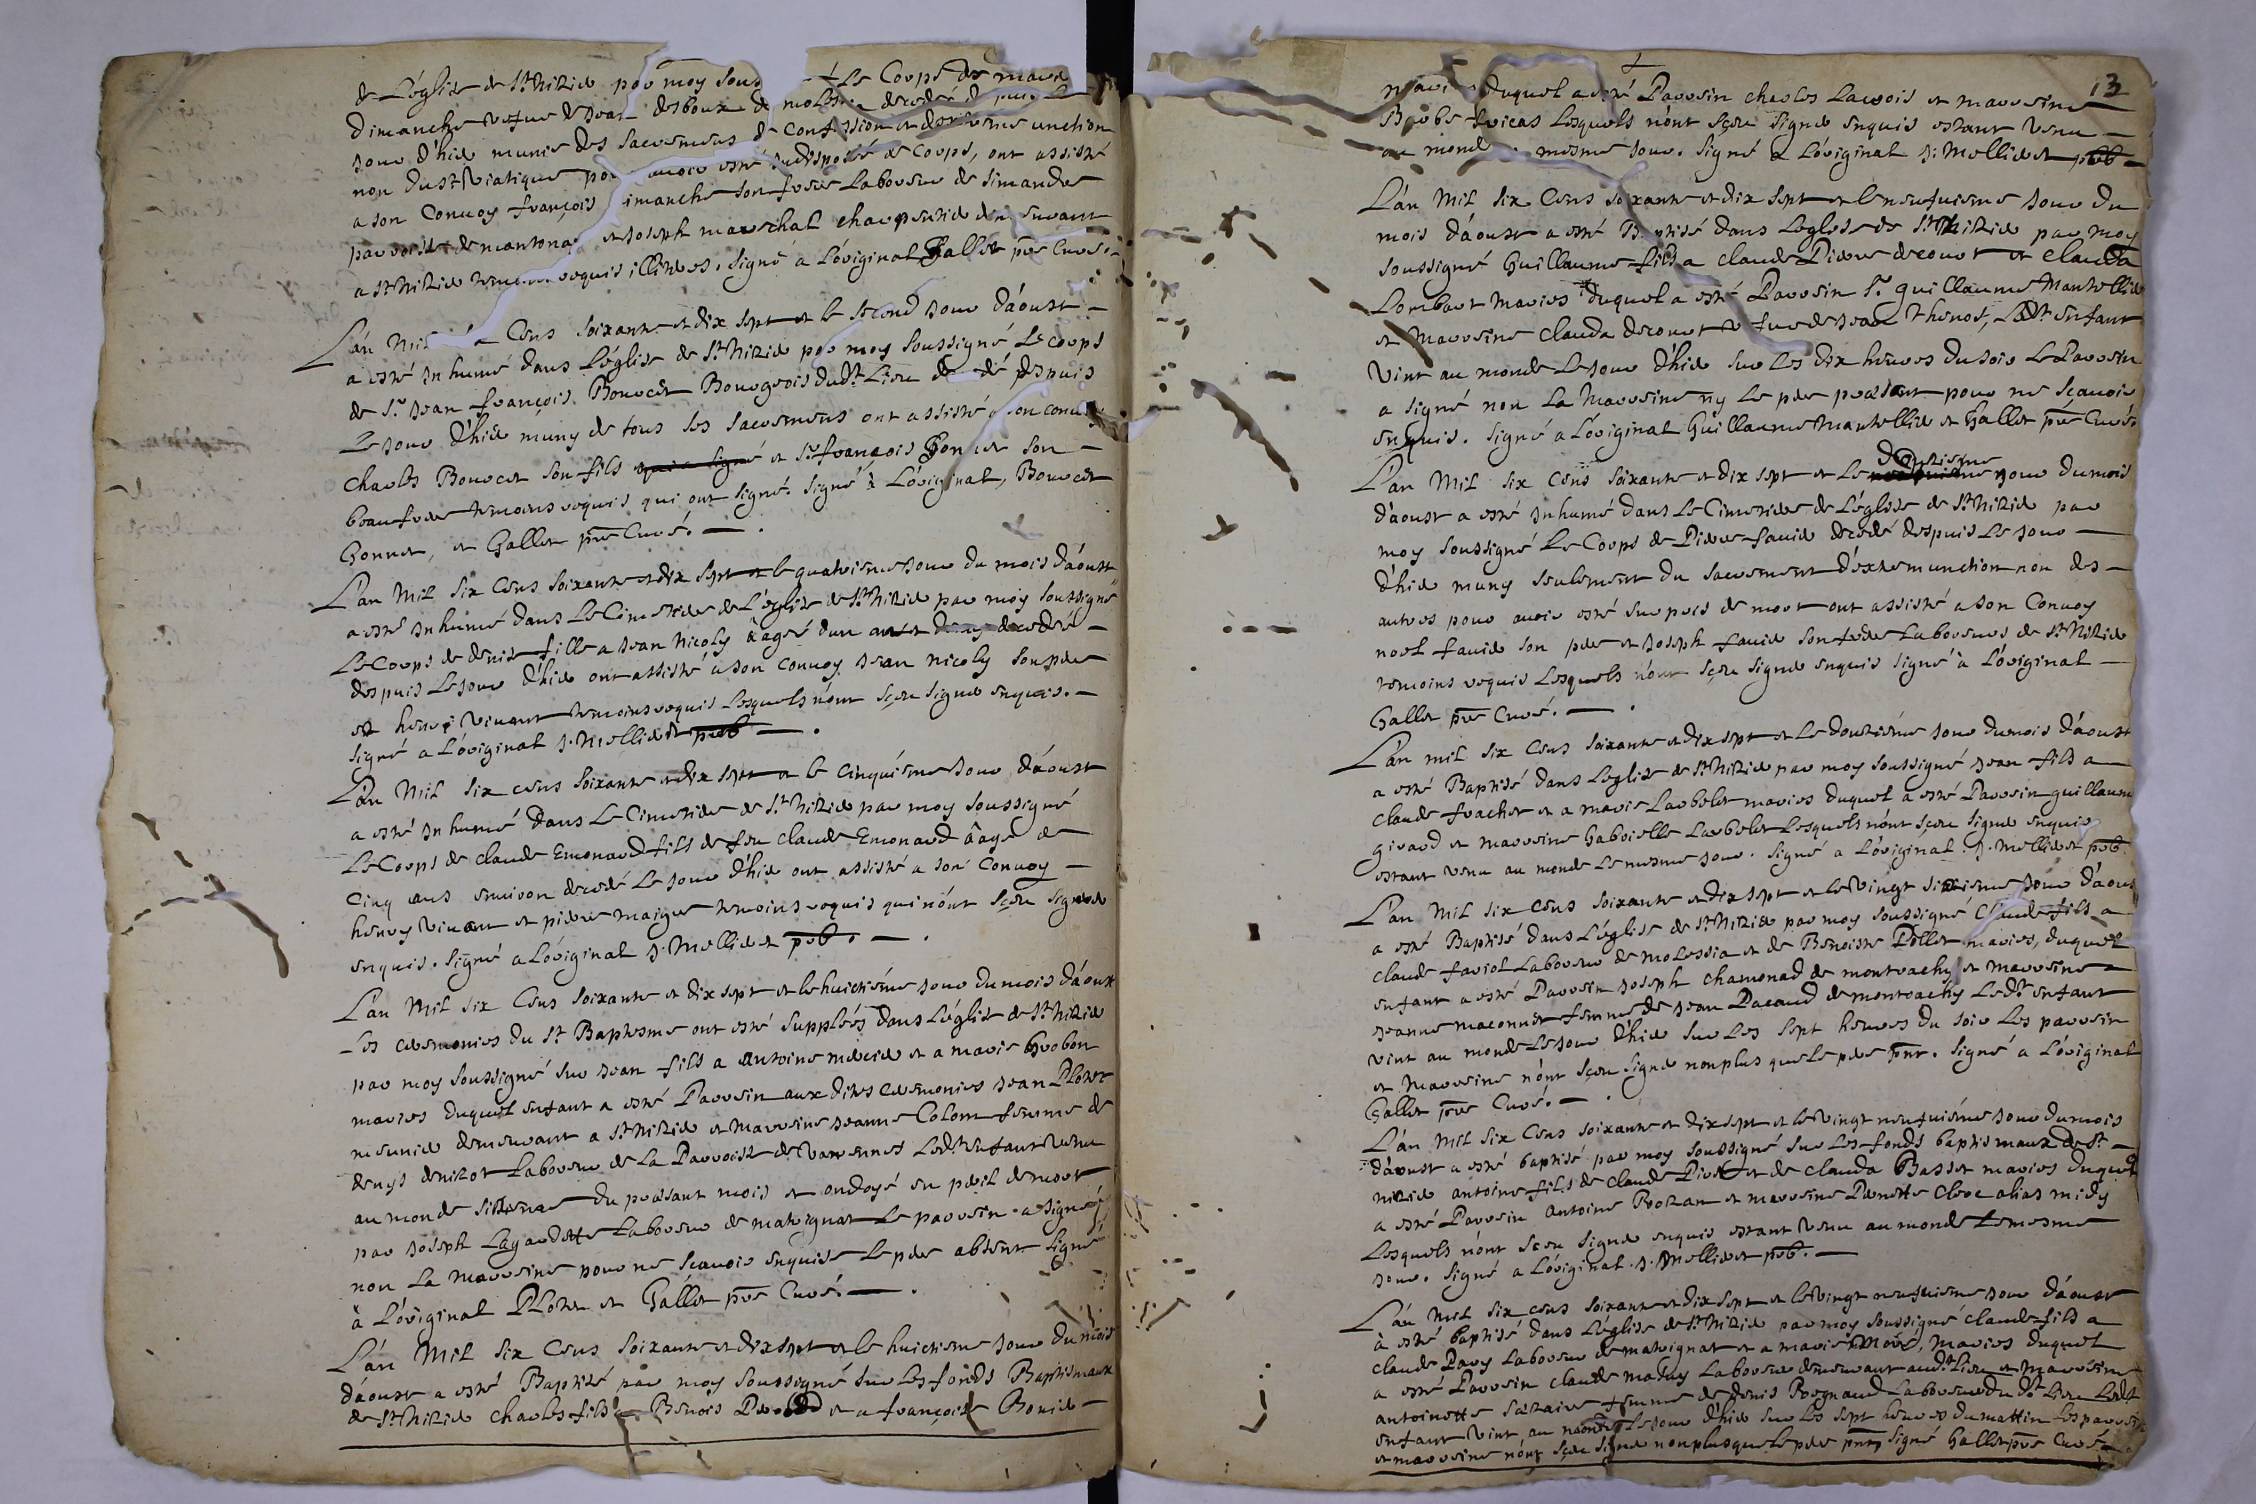 de L'église de St Nizié par moy sous Le Corps de marie
Dimanche vefve de Jean desboux de molessia decedée depuis Le
Jour d'hié munie des sacremens de Confession et d'extreme unction
non du St Viatique pour avoir esté indisposée de Corps, ont assisté
a son Convoy françois Dimanche son frere Laboureur de simandre
parroisse de mantonay et Joseph mareschal charpentié demeurant
a St Nizié temoins requis illitéres. Signé a L'original Gallet pre Curé.
L'an Mil six Cens soixante et dix sept et le second Jour d'aoust
a esté Inhumé dans L'église de St Nizié par moy soussigné Le Corps
de Sr. Jean françois Borrocet Bourgeois dudt Lieu decedé depuis
Le Jour d'hié muny de tous les sacremens ont assisté a son convoy
Charles Borrocet son fils qui a signé et Sr françois Gonnet son
beaufrere temoins requis qui ont signé. Signé à L'original, Borrocet
Gonnet, et Gallet pre Curé.
L'an Mil six Cens soixante et dix sept et le quatriesme Jour du mois d'aoust
a esté Inhumé dans Le Cimetiere de L'église de St Nizié par moy soussigné
Le Corps de denise fille a Jean Nicoly âagée d'un an et demy decedée
despuis Le Jour d'hié ont assisté a son Convoy Jean Nicoly son pere
et henry Vivant temoins requis Lesquels n'ont sçeu signé enquis.
Signé a L'original J. Mellieret pbr
L'an Mil six cens soixante et dix sept et le cinquiésme Jour d'aoust
a esté Inhumé dans Le Cimetiere de St Nizié par moy soussigné
Le Corps de claude Emonard fils de feu claude Emonard âagé de
cinq ans environ decedé Le Jour d'hié ont assisté a son Convoy
henry Vivant et pierre maigre temoins requis qui n'ont sçeu signé
enquis. Signé a L'original J. Mellieret pbr.
L'an Mil six Cens soixante et dix sept et le huictiésme Jour du mois d'aoust
Les ceremonies du St Baptesme ont esté suppléés dans L'église de St Nizié
par moy soussigné sur Jean fils a Antoine mercié et a marie Grobon
mariés duquel enfant a esté Parrosin aux dites ceremonies Jean Plotet
meunié demeurant a St Nizié et Marrosine Jeanne Colom femme de
denys denizot Laboureur de La Parroisse de Varennes Ledt enfant venu
au monde du presant mois et ondoyé en peril de mort
par Joseph Lagardette Laboureur de malvignat Le parrosin a signé
non La marrosine pour ne sçavoir enquise Le pere absent signé
à L'original Plotet et Gallet pre Curé.
L'an Mil six Cens soixante et dix sept et le huictiesme Jour du mois
d'aoust a esté Baptisé par moy soussigné sur Les fonds Baptismaux
de St Nizié charles fils a Benoit et a françoise Bouvié
13
mariés duquel a esté Parrosin charles Lacrois et marrosine
Barbe Lesquels n'ont sçeu signé enquis estant venu
au monde Le mesme Jour. Signé a L'original J. Mellieret pbr
L'an Mil six Cens soixante et dix sept et le neufuiesme Jour du
mois d'aoust a esté Baptisé dans L'eglise de St Nizié par moy
soussigné Guillaume fils a claude Pierre decorot et clauda
Lombart mariés duquel a esté Parrosin Sr. guillaume Mantellié
et Marrosine Clauda decorot vefve de Jean Thenot, Ledt enfant
vint au monde Le Jour d'hié sur Les dix heures du soir Le Parrosin
a signé non La Marrosine ny Le pere presant pour ne sçavoir
enquis. Signé a L'original Guillaume Mantellié et Gallet pre Curé
douziesme
L'an Mil six cens soixante et dix sept et Le Jour du mois
d'aoust a esté Inhumé dans Le Cimetiere de L'église de St Nizié par
moy soussigné Le Corps de Pierre favié decedé despuis Le Jour
d'hié muny seulement du sacrement d'extremunction non des
autres pour avoir esté surpris de mort ont assisté a son Convoy
noel favié son pere et Joseph favié son frere Laboureurs de St Nizié
temoins requis Lesquels n'ont sçeu signé enquis signé à L'original
Gallet pre Curé.
L'an mil six Cens soixante et dix sept et Le douziésme Jour du mois d'aoust
a esté Baptisé dans L'eglise de St Nizié par moy soussigné Jean fils a
claude frachet et a marie Larbolet mariés duquel a esté Parrosin guillaume
girard et marrosine Gabrielle Larbolet Lesquels n'ont sçeu signé enquis
estant venu au monde Le mesme Jour. Signé a L'original. J. Mellieret pbr
L'an Mil six cens soixante et dix sept et Le Vingt sixiesme Jour d'aoust
a esté Baptisé dans L'église de St Nizié par moy soussigné claude fils a
claude faviot Laboureur de molessia et de Benoiste Pollet mariés, duquel
enfant a esté Parrosin Joseph Chamonad de montrachy et marrosine
Jeanne maconnet femme de Jean Pacaud de montrachy Ledt enfant
vint au monde Le Jour d'hié sur Les sept heures du soir Les parrosin
et Marrosine n'ont sçeu signé nonplus que Le pere pnt. Signé a L'original
Gallet pre Curé.
L'an Mil six Cens soixante et dix sept et le Vingt neufuiésme Jour du mois
d'aoust a esté baptisé par moy soussigné sur Les fonds baptismaux de St
nizié antoine fils de claude et de clauda Basset mariés duquel
a esté Parrosin Antoine Prozan et marrosine Pernette Clerc alias midy
Lesquels n'ont sçeu signé enquis estant venu au monde Le mesme
Jour. Signé a L'original. J. Mellieret pbr.
L'an Mil six cens soixante et dix sept et le Vingt neufuiesme Jour d'aoust
à esté baptisé dans L'église de St Nizié par moy soussigné claude fils a
claude Pavy Laboureur de malvignat et a marie Moré, mariés duquel
a esté Parrosin claude mathy Laboureur demeurant audt Lieu et Marrosine
antoinette femme de denis Prognaud Laboureur dudt Lieu Ledt
enfant vint au monde Le Jour d'hié sur Les sept heures du mattin Les parrosin
et marrosine n'ont sçeu signé nonplus que Le pere pnt, signé Gallet pre Curé